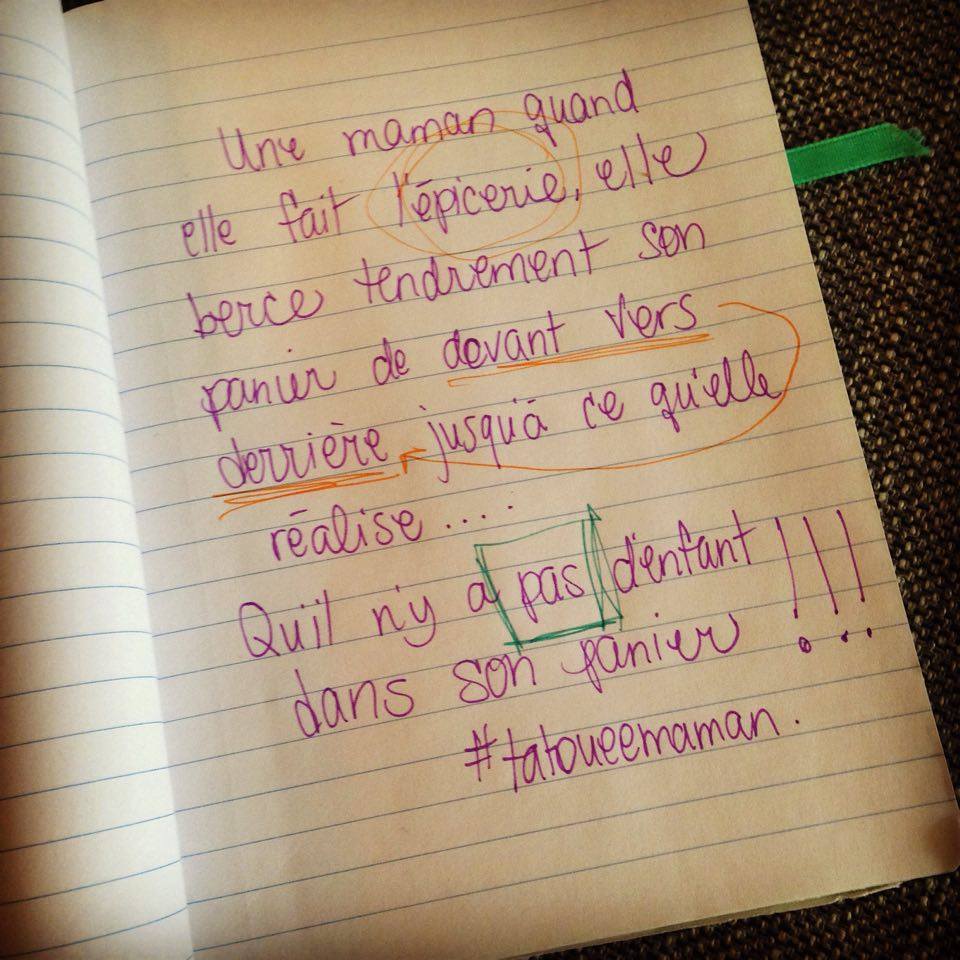 Une maman quand
elle fait l'épicerie, elle
berce tendrement son
panier de devant vers
derrière jusqu'à ce qu'elle
réalise ....
Qu'il n'y a pas d'enfant
dans son panier !!!
#tatoueemaman.